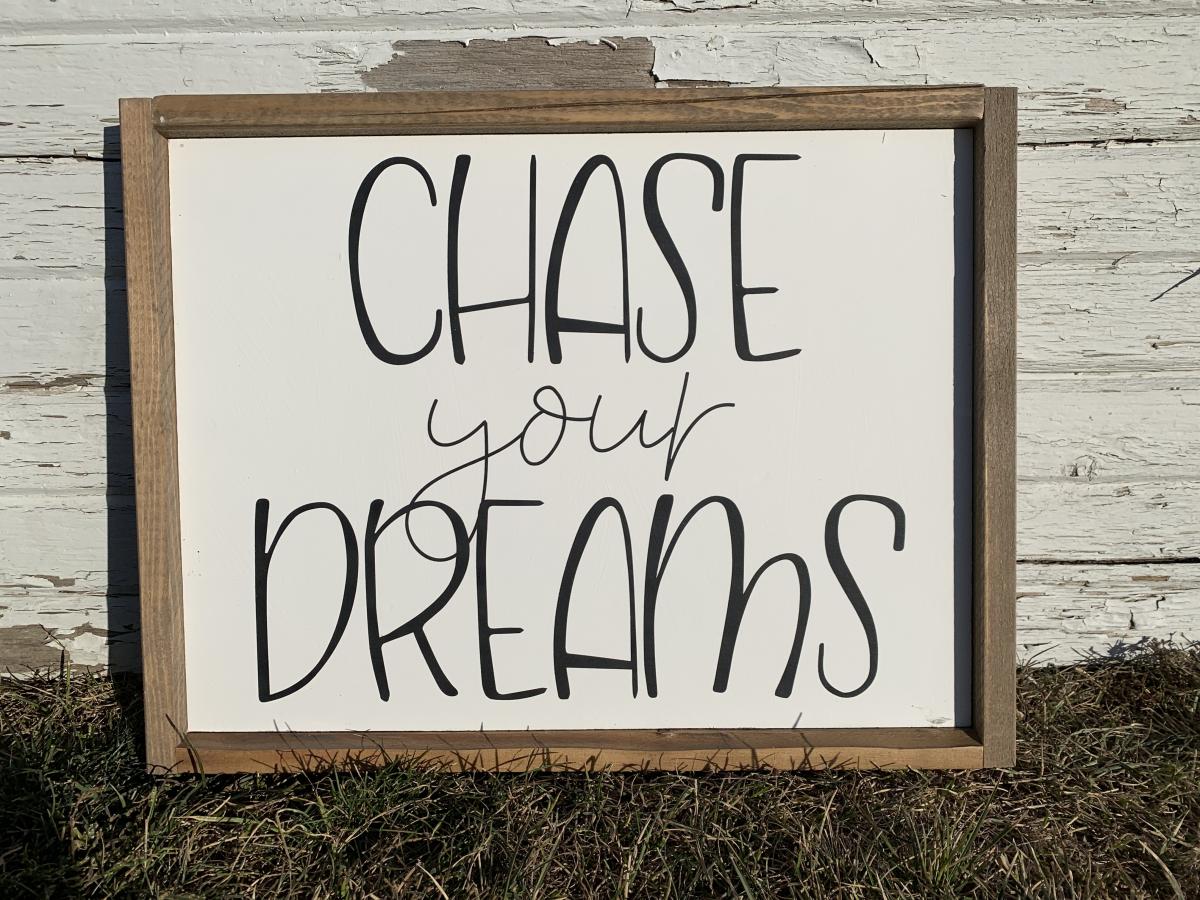 CHASE
your
DREAMS